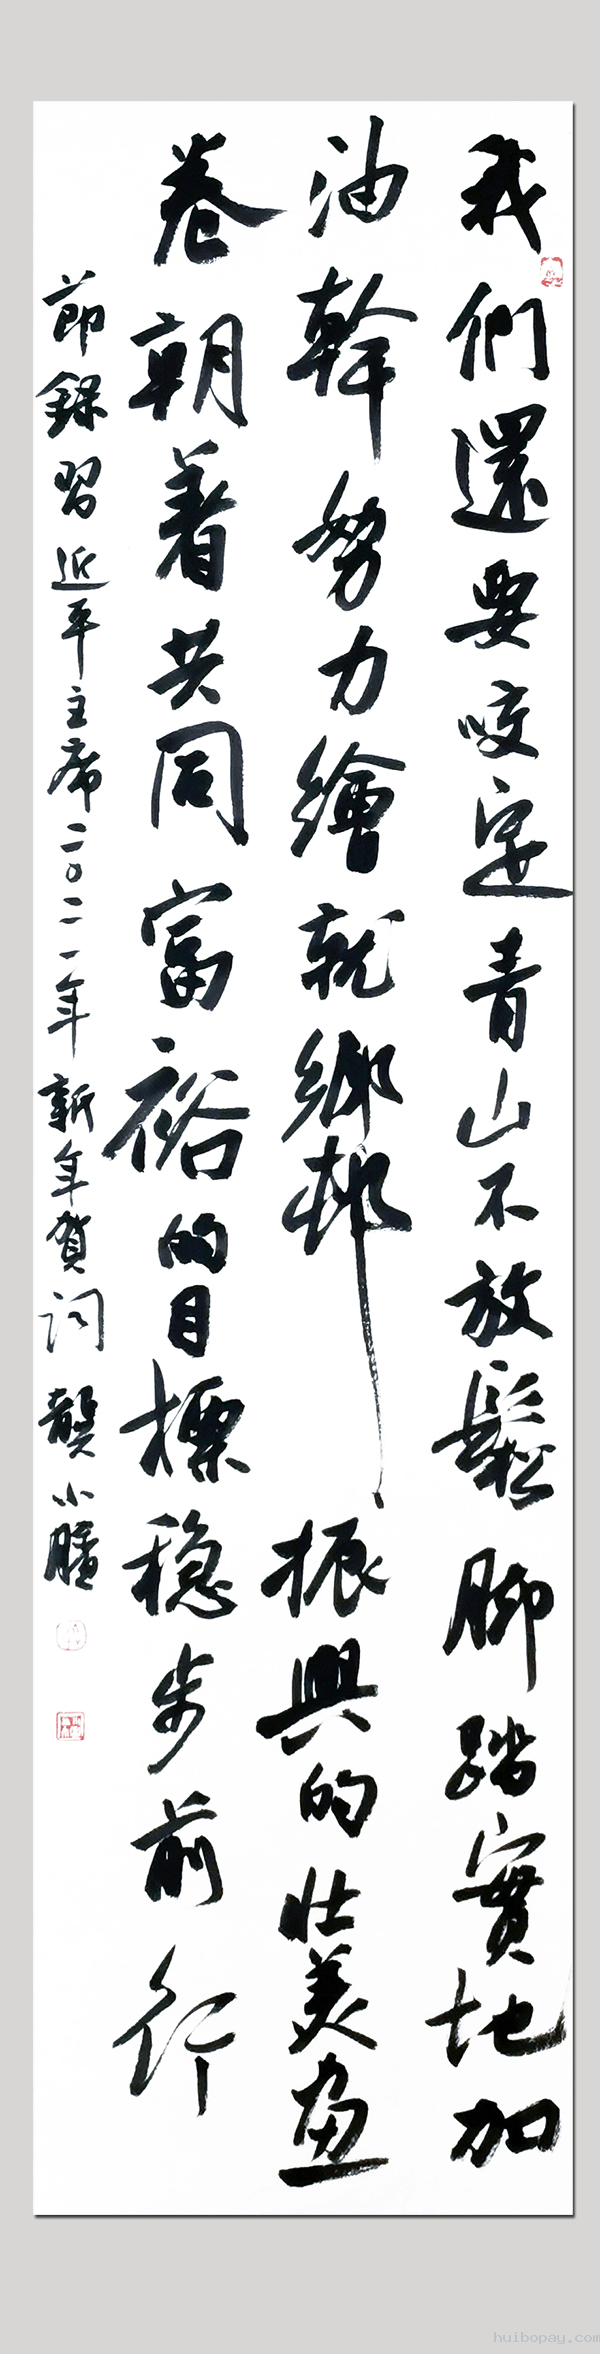 我們還要咬定青山不放鬆腳踏實地加
油幹努力繪就鄉邨振興的壯美畫
卷朝着共同富裕的目標稳步前行
節錄習近平主席二〇二一年新年賀詞龔小膛
huibopay.com